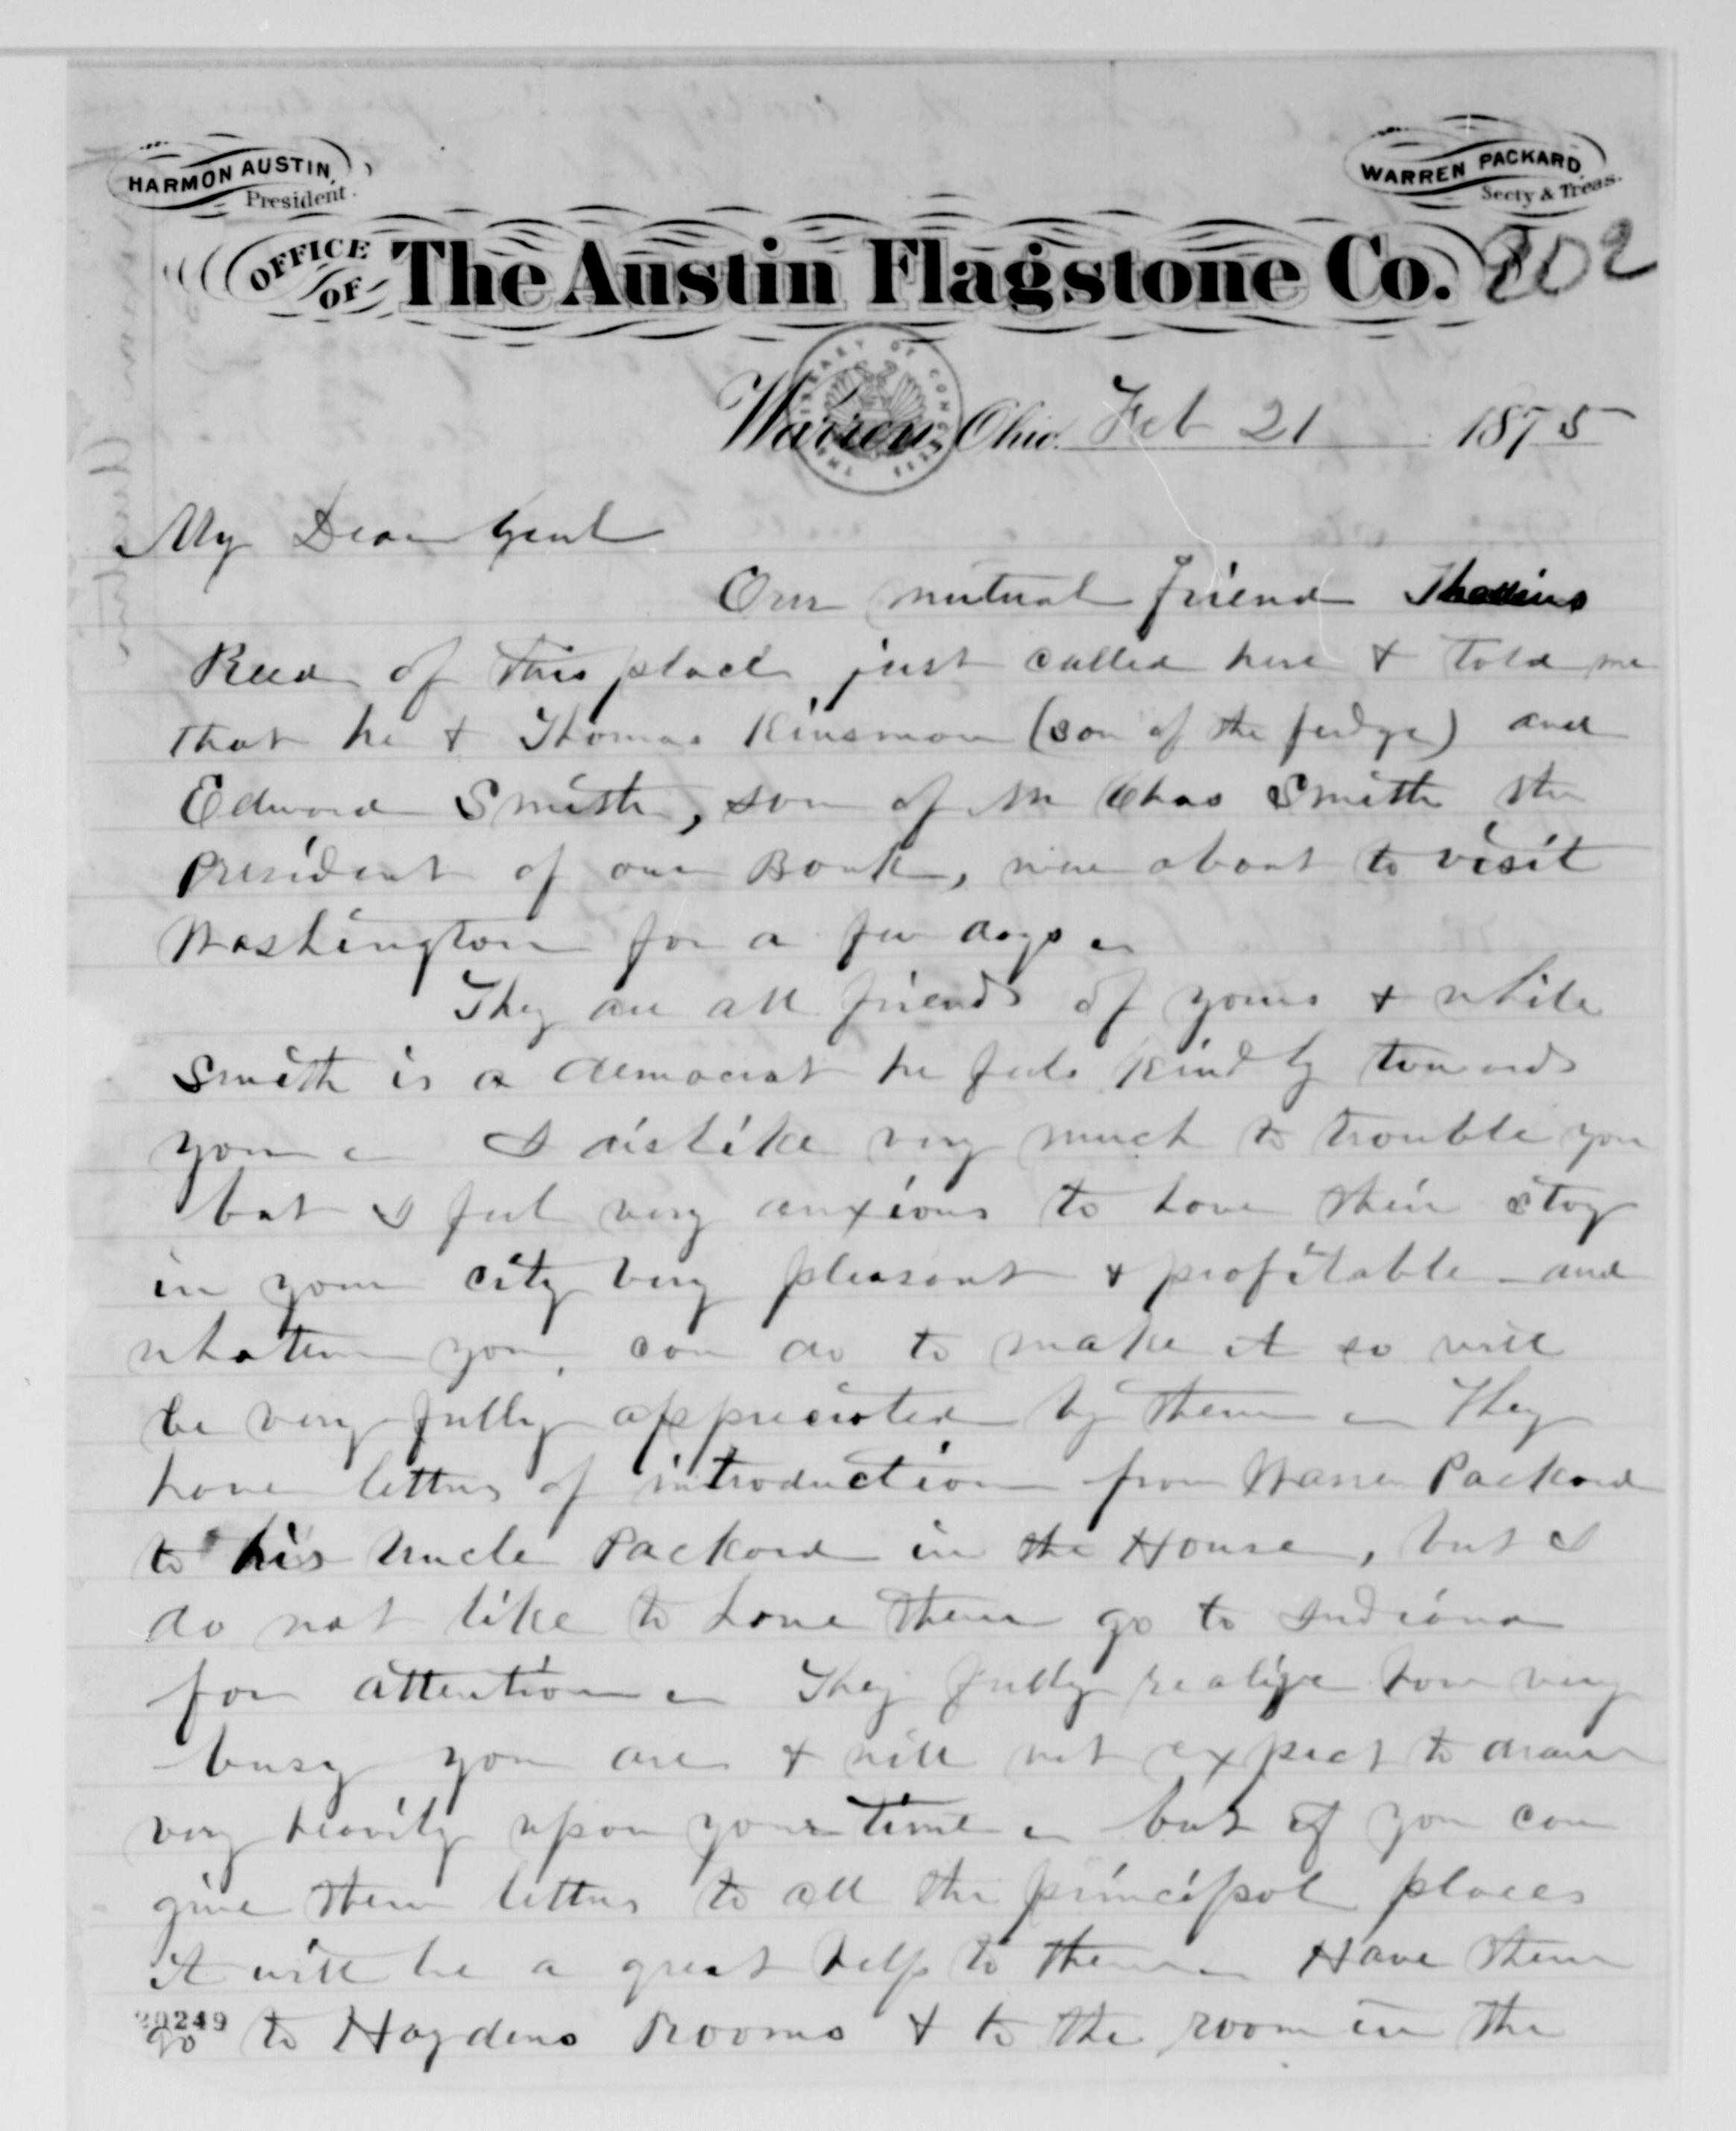 HARMON AUSTIN,
President.
WARREN PACKARD,
Secty & Treas.
OFFICE OF The Austin Flagstone Co.
202
THE LIBRARY OF CONGRESS
Warren, Ohio. Feb 21 1875
My Dear Genl
Our mutual friend
Reed of this place just called here & told me
that he & Thomas Kinsman (son of the judge) and
Edward Smith, son of Mr Chas Smith the
President of our Bank, were about to visit
Washington for a few days
They are all friends of yours & while
Smith is a democrat he feels kindly towards
you I dislike very much to trouble you
but I feel very anxious to have their stay
in your city very pleasant & profitable and
whatever you can do to make it so will
be very fully appreciated by them They
have letters of introduction from Warren Packard
to his Uncle Packard in the House, but I
do not like to have them go to Indiana
for attention They fully realize how very
busy you are & will not expect to draw
very heavily upon your time but if you can
give them letters to all the principal places
it will be a great help to them Have them
20249
go to Haydens Rooms & to the room in the